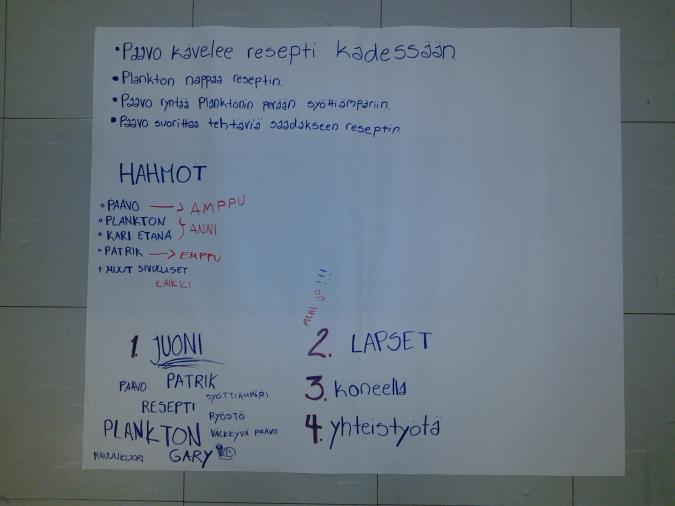 • Paavo kävelee resepti kädessään.
• Plankton nappaa reseptin.
• Paavo ryntää Planktonin perään syöttiämpäriin.
• Paavo suorittaa tehtäviä saadakseen reseptin.
HAHMOT
• PAAVO → AMPPU
• PLANKTON
• KARI ETANA } ANNI
• PATRIK → EMPPU
+ MUUT SIVULLISET
KAIKKI
meni jo !!!
1. JUONI
PAAVO PATRIK
SYÖTTIÄMPÄRI
RESEPTI
RYÖSTÖ
PLANKTON VÄLKKYVÄ PAAVO
RAVUNKUORI GARY
2. LAPSET
3. koneella
4. yhteistyötä